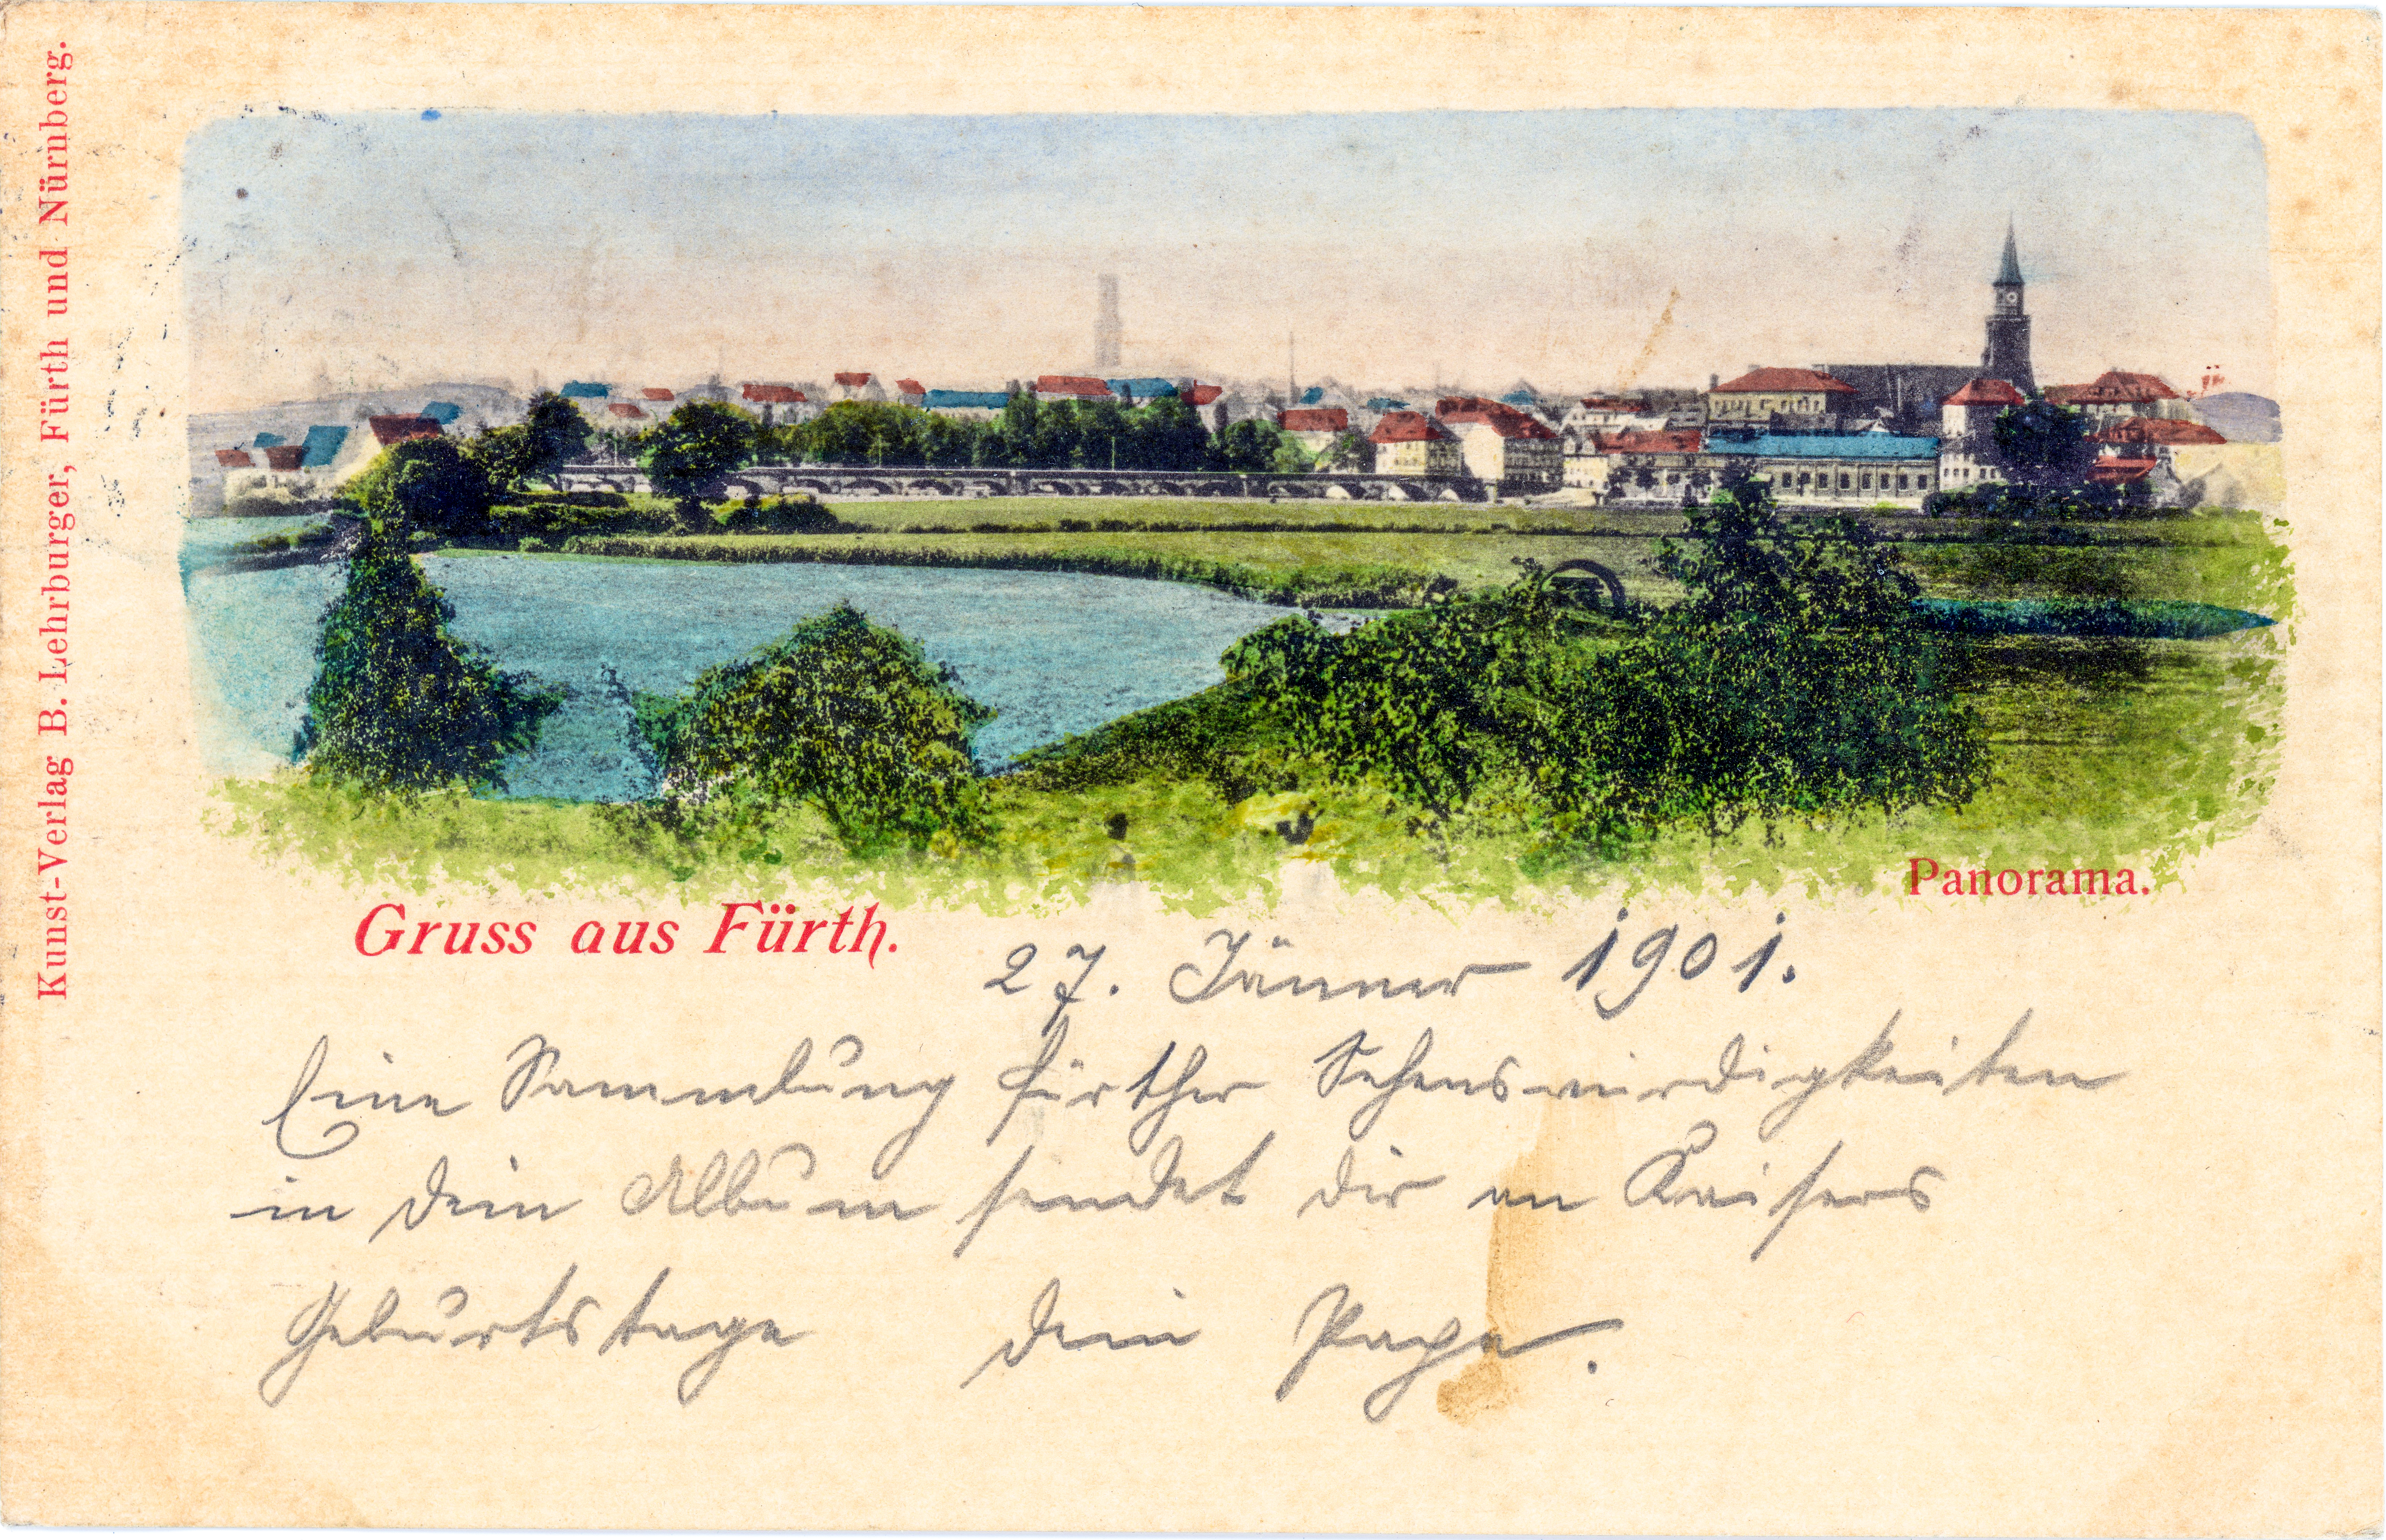 Kunst-Verlag B. Lehrburger, Fürth und Nürnberg.
Panorama.
Gruss aus Fürth.
27. Jänner 1901.
Eine Sammlung fürther Sehenswürdigkeiten
in dein Album sendet dir an Kaisers
Geburtstage dein Papa.